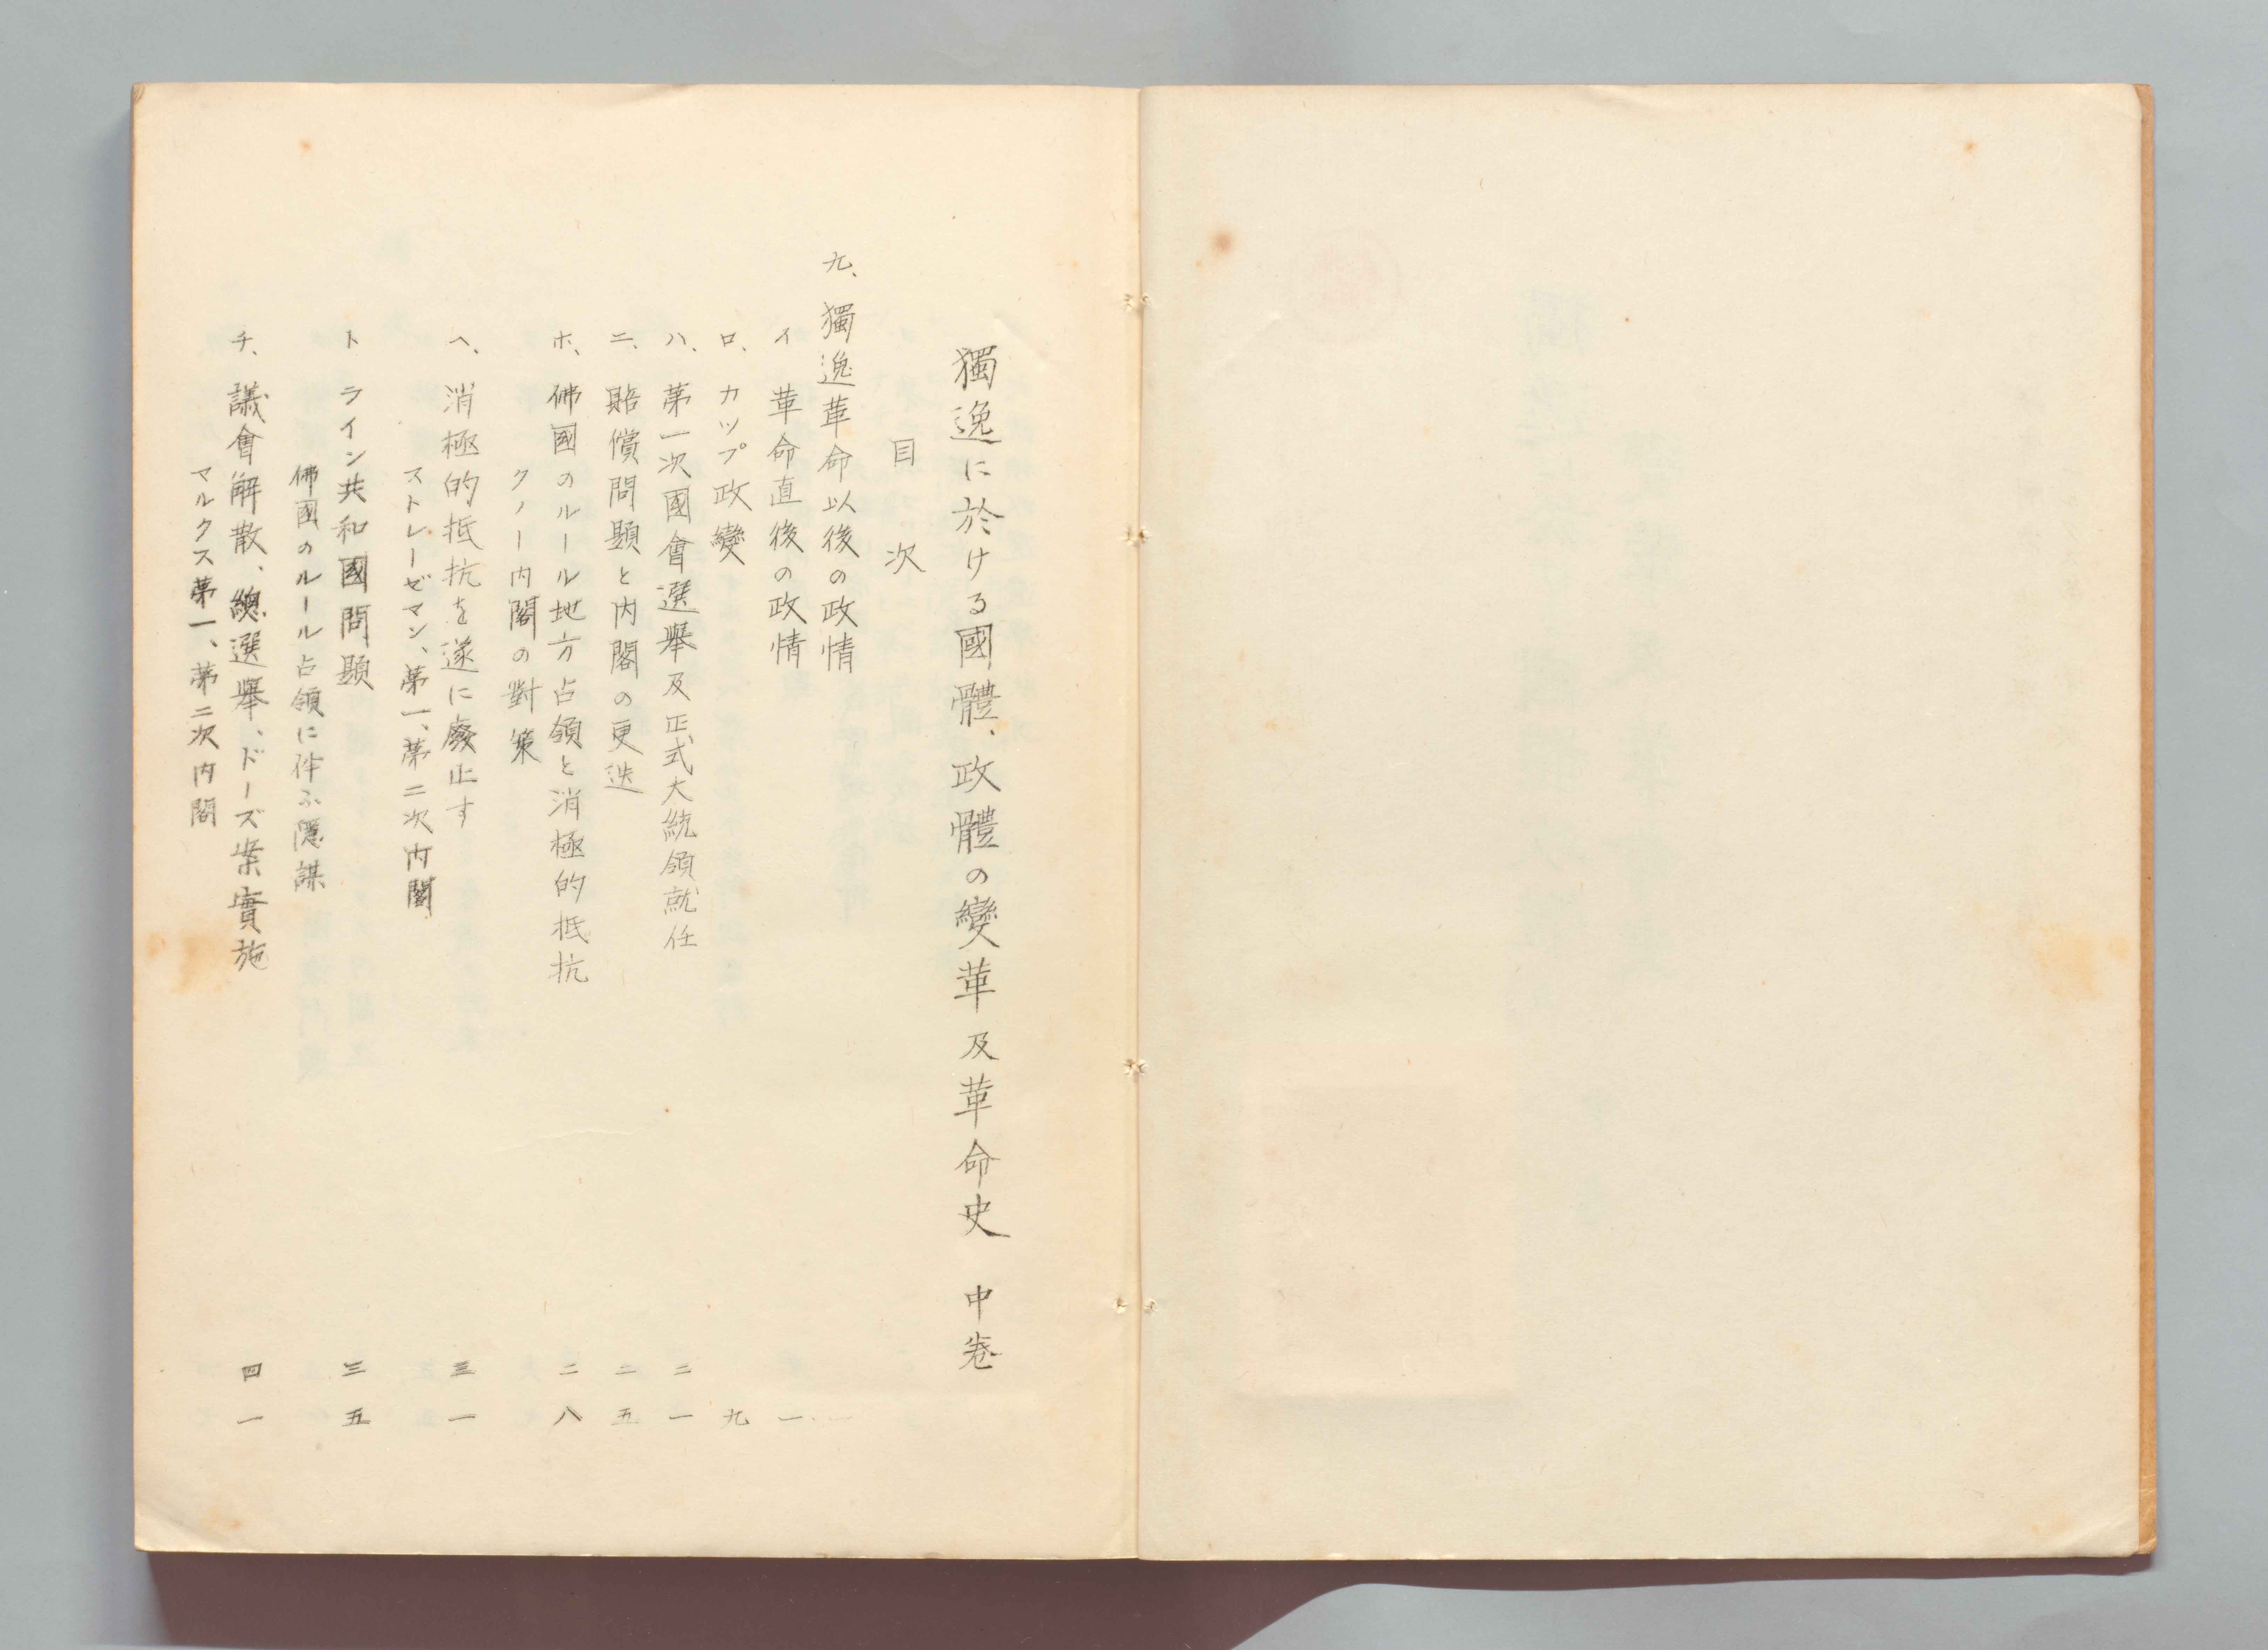 獨逸に於ける國體、政體の變革及革命史 中卷
目次
九、獨逸革命以後の政情 一
イ 革命直後の政情 一
ロ、カップ政變 九
ハ、第一次國會選擧及正式大統領就任 二一
ニ、賠償問題と内閣の更迭 二五
ホ、佛國のルール地方占領と消極的抵抗 二八
クノー内閣の對策
ヘ、消極的抵抗を遂に廢止す 三一
ストレーゼマン、第一、第二次内閣
ト ライン共和國問題 三五
佛國のルール占領に伴ふ隱謀
チ、議會解散、總選擧、ドーズ案實施 四一
マルクス第一、第二次内閣